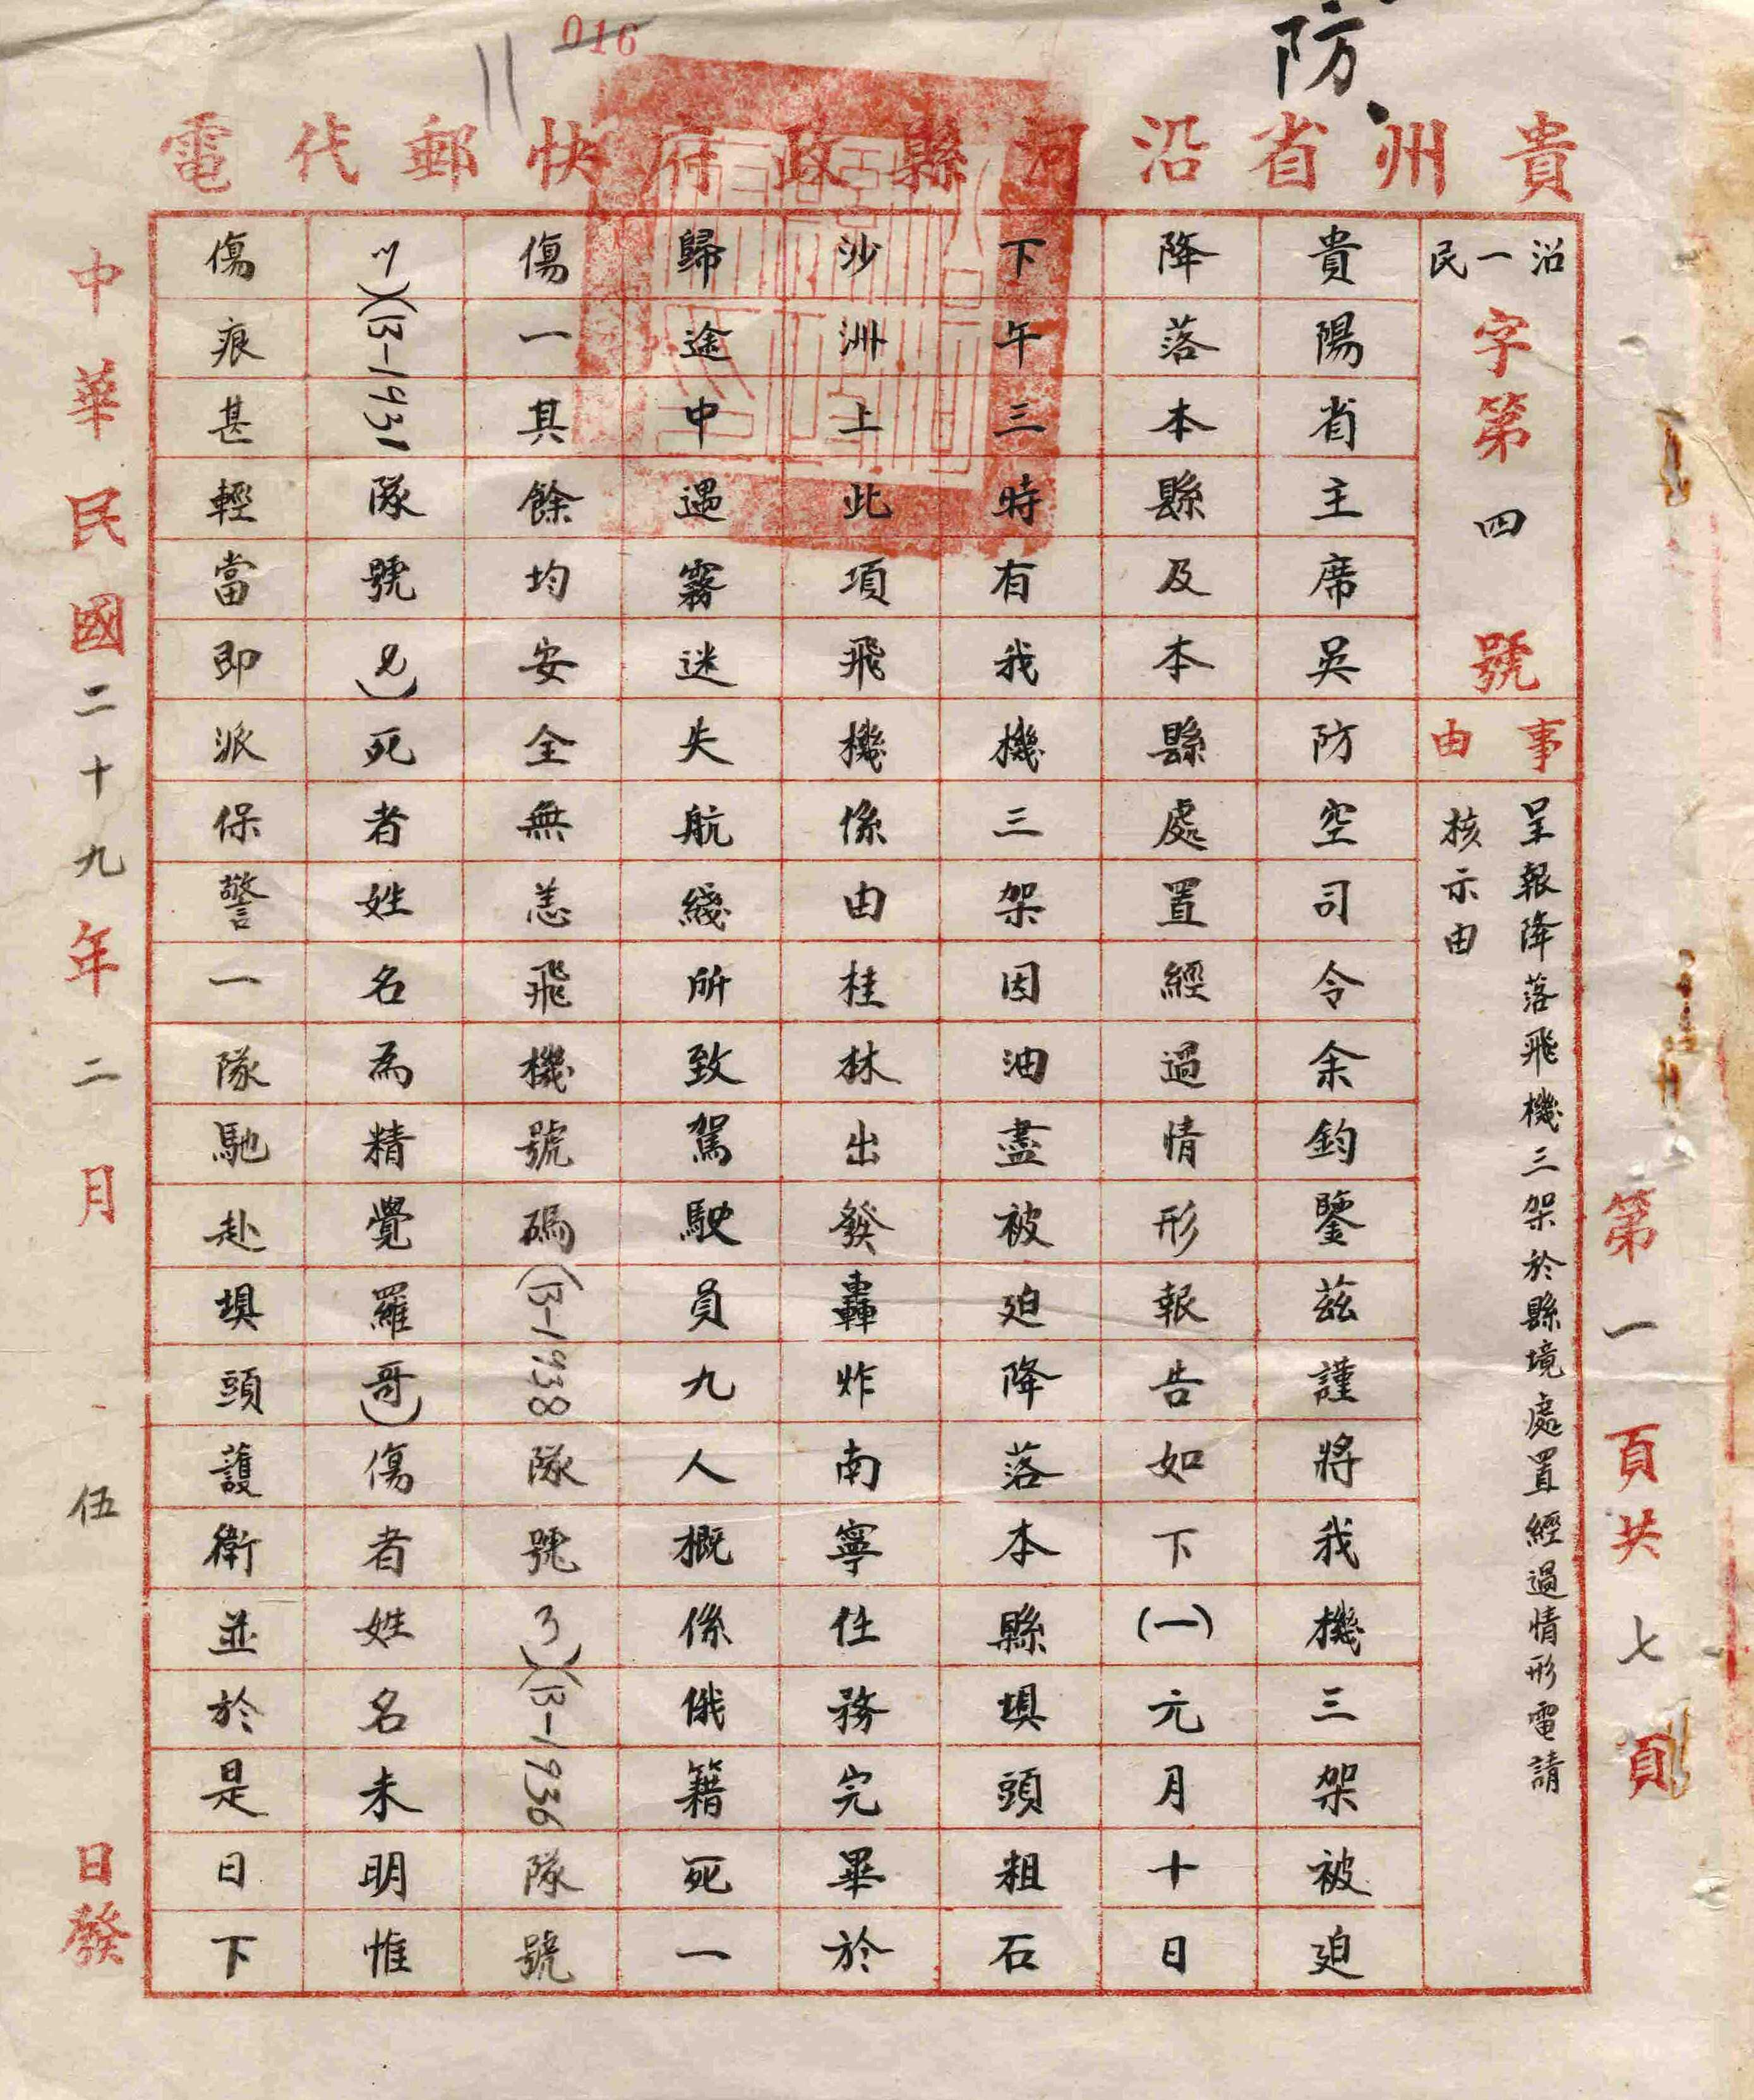 016
11
防
貴州省沿河縣政府快郵代電
沿一民字第四號
事由
呈報降落飛機三架於縣境處置經過情形電請
核示由
貴陽省主席吳防空司令余鈞鑒茲謹將我機三架被迫
降落本縣及本縣處置經過情形報告如下(一)元月十日
下午三時有我機三架因油盡被迫降落本縣塤頭粗石
沙洲上此項飛機係由桂林出發轟炸南寧任務完畢於
歸途中遇霧迷失航綫所致駕駛員九人概係俄籍死一
傷一其餘均安全無恙飛機號碼(B-1938隊號3)(B-1936隊號
7)(B-1931隊號2)死者姓名為精覺羅哥)傷者姓名未明惟
傷痕甚輕當即派保警一隊馳赴塤頭護衛並於是日下
中華民國二十九年二月伍日發
第一頁共七頁